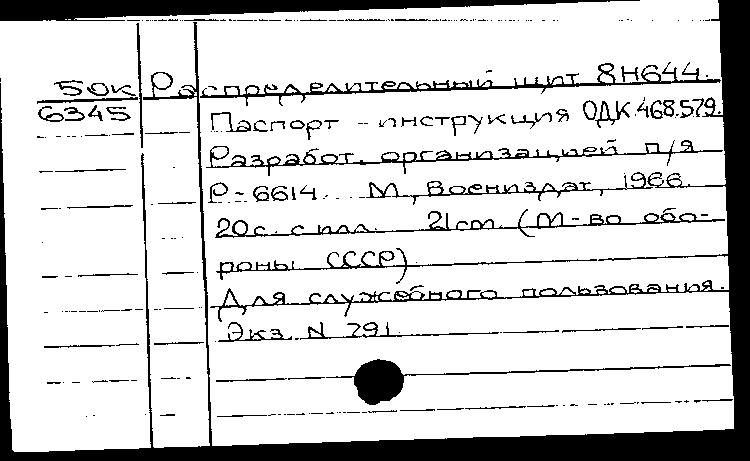 50к Распределительный щит 8Н644.
6345
Паспорт - инструкция ОДК.468.579.
Разработ. организацией п/я
Р-6614. М., Воениздат, 1966.
20с. с илл. 21cm. (М-во обо-
роны СССР)
Для служебного пользования.
Экз. N 291